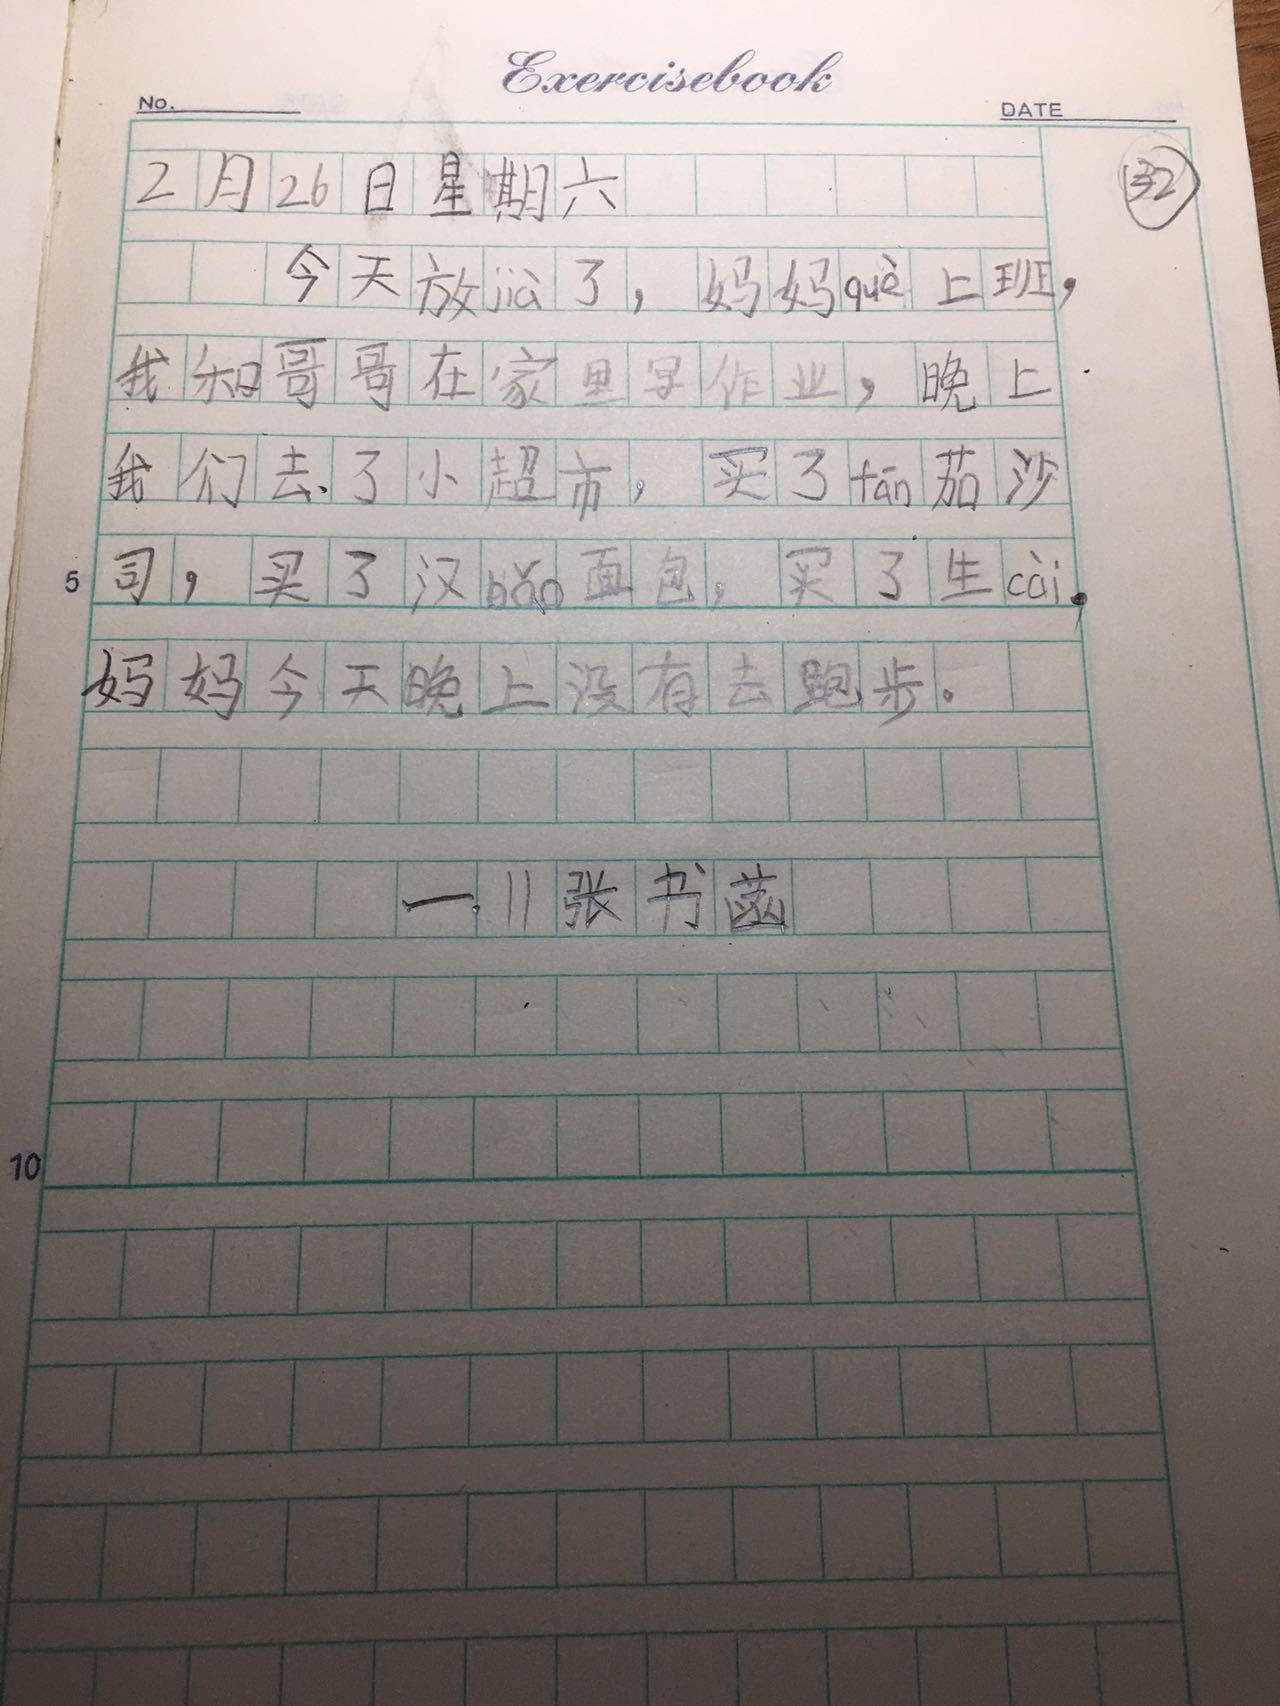 Exercisebook
No.
DATE
32
2月26日星期六
今天放jià了，妈妈què上班，
我和哥哥在家里写作业，晚上
我们去了小超市，买了fān茄沙
司，买了汉bǎo面包，买了生cài，
妈妈今天晚上没有去跑步。
一.11张书
5
10